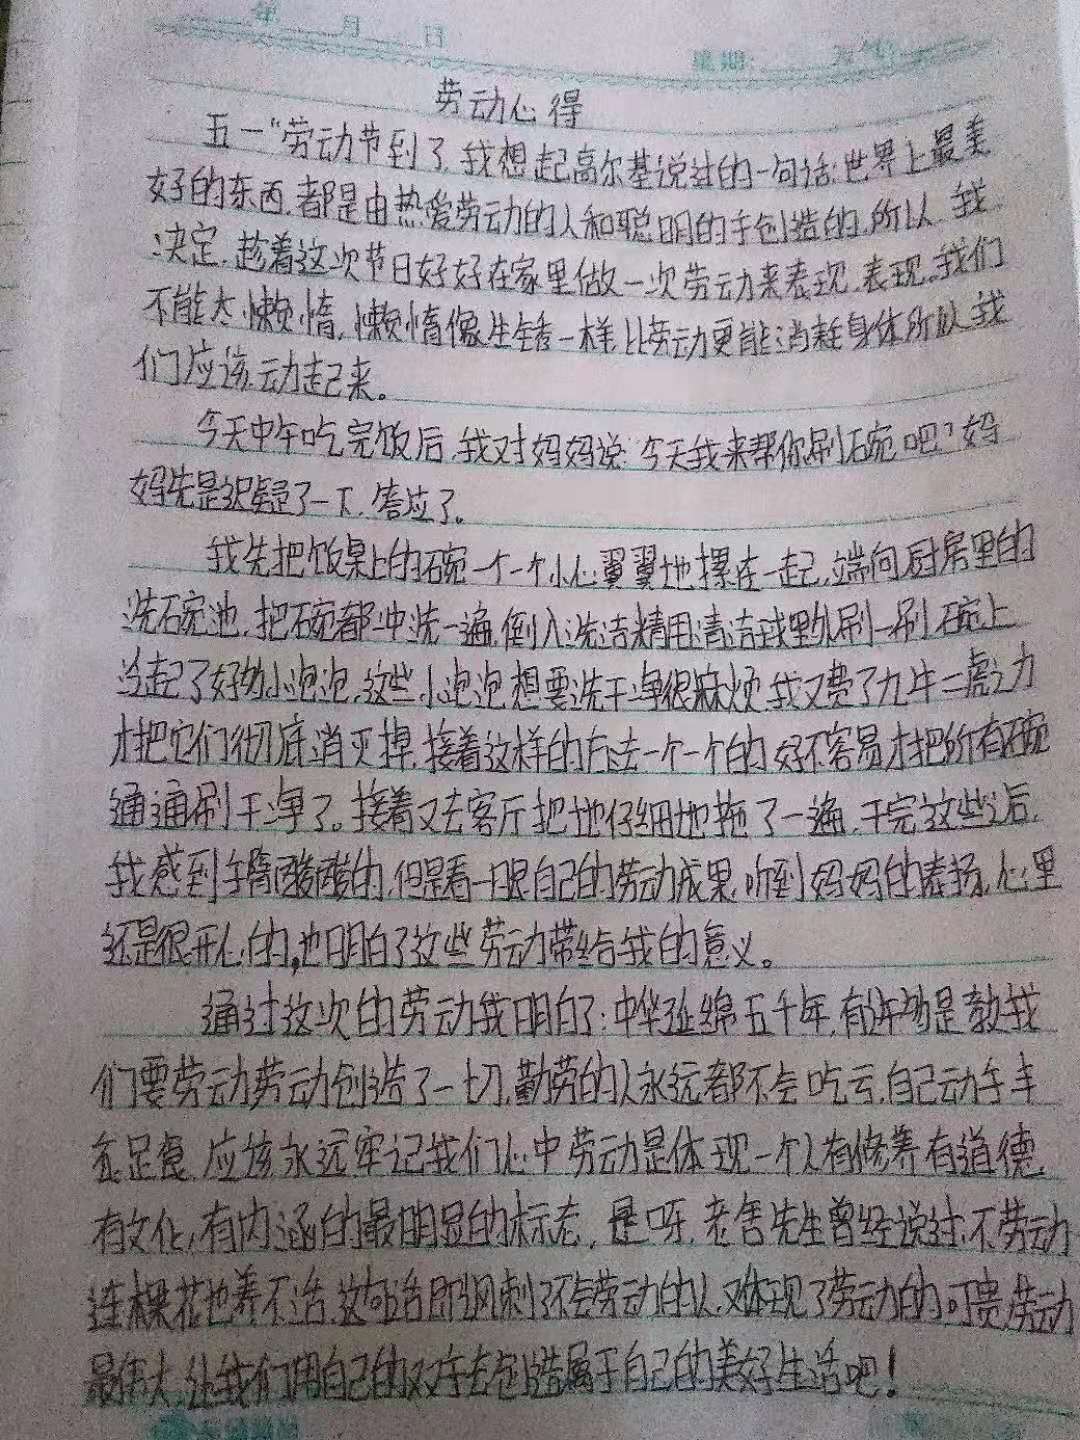 年 月 日
星期: 天气:
劳动心得
五一"劳动节到了,我想起高尔基说过的一句话:世界上最美
好的东西,都是由热爱劳动的人和聪明的手创造的,所以,我
决定,趁着这次节日好好在家里做一次劳动来表现,表现。我们
不能太懒惰,懒惰像生锈一样,比劳动更能消耗身体所以我
们应该动起来。
今天中午吃完饭后,我对妈妈说:今天我来帮你刷碗吧?妈
妈先是迟疑了一下,答应了。
我先把饭桌上的碗一个一个小心翼翼地摞在一起,端向厨房里的
洗碗池,把碗都冲洗一遍,倒入洗洁精用清洁球里外刷一刷碗上
当起了好多小泡泡,这些小泡泡想要洗干净很麻烦,我又费了九牛二虎之力
才把它们彻底消灭掉,接着这样的方法一个一个的,好不容易才把所有碗
通通刷干净了。接着又去客厅把地仔细地拖了一遍,干完这些之后,
我感到手臂酸酸的,但是看一眼自己的劳动成果,听到妈妈的表扬,心里
还是很开心的,也明白了这些劳动带给我的意义。
通过这次的劳动我明白了:中华延绵五千年,有许多是教我
们要劳动劳动创造了一切,勤劳的人永远都不会吃亏,自己动手丰
衣足食,应该永远牢记我们心中劳动是体现一个人有修养有道德,
有文化,有内涵的最明显的标志,是呀,老舍先生曾经说过:不劳动
连棵花也养不活,这句话即讽刺了不会劳动的人,又体现了劳动的可贵,劳动
最伟大,让我们用自己的双手去创造属于自己的美好生活吧!